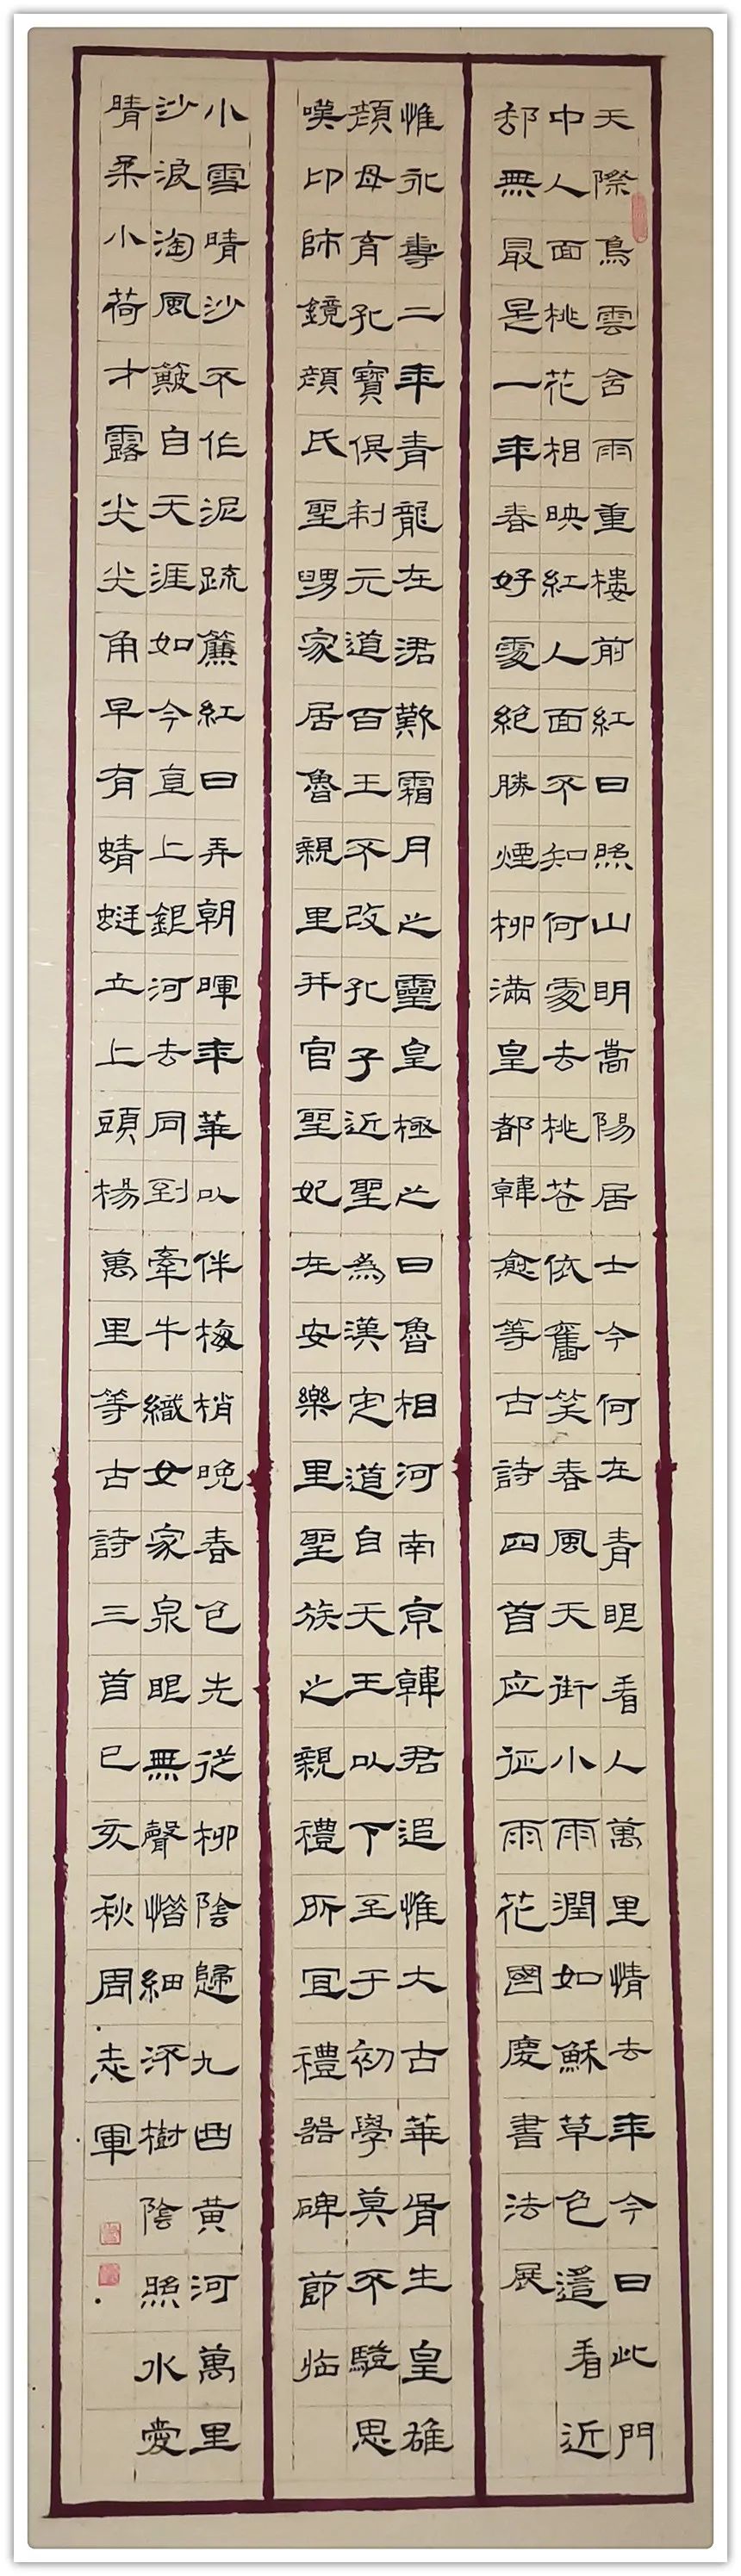 天際鳥雲含雨重樓前紅日照山明嵩陽居士今何在青眼看人萬里情去年今日此門
中人面桃花相映紅人面不知何處去桃花依舊笑春風天街小雨潤如穌草色遥看近
却無最是一年春好處絕勝煙柳滿皇都韓愈等古詩四首应征雨花國慶書法展
惟永壽二年青龍在涒歎霜月之靈皇極之日魯相河南京韓君追惟大古華胥生皇雄
顏母育孔寶俱制元道百王不改孔子近聖為漢定道自天王以下至于初學莫不驗思
嘆印師鏡顏氏聖舅家居魯親里并官聖妃在安樂里聖族之親禮所宜禮器碑節临
小雪晴沙不作泥疏簾紅日弄朝暉年華以伴梅梢晚春色先從柳陰歸九曲黄河萬里
沙浪淘風簸自天涯如今直上銀河去同到牽牛織女家泉眼無聲惜細流樹陰照水愛
晴柔小荷才露尖尖角早有蜻蜓立上頭楊萬里等古詩三首已亥秋周志軍